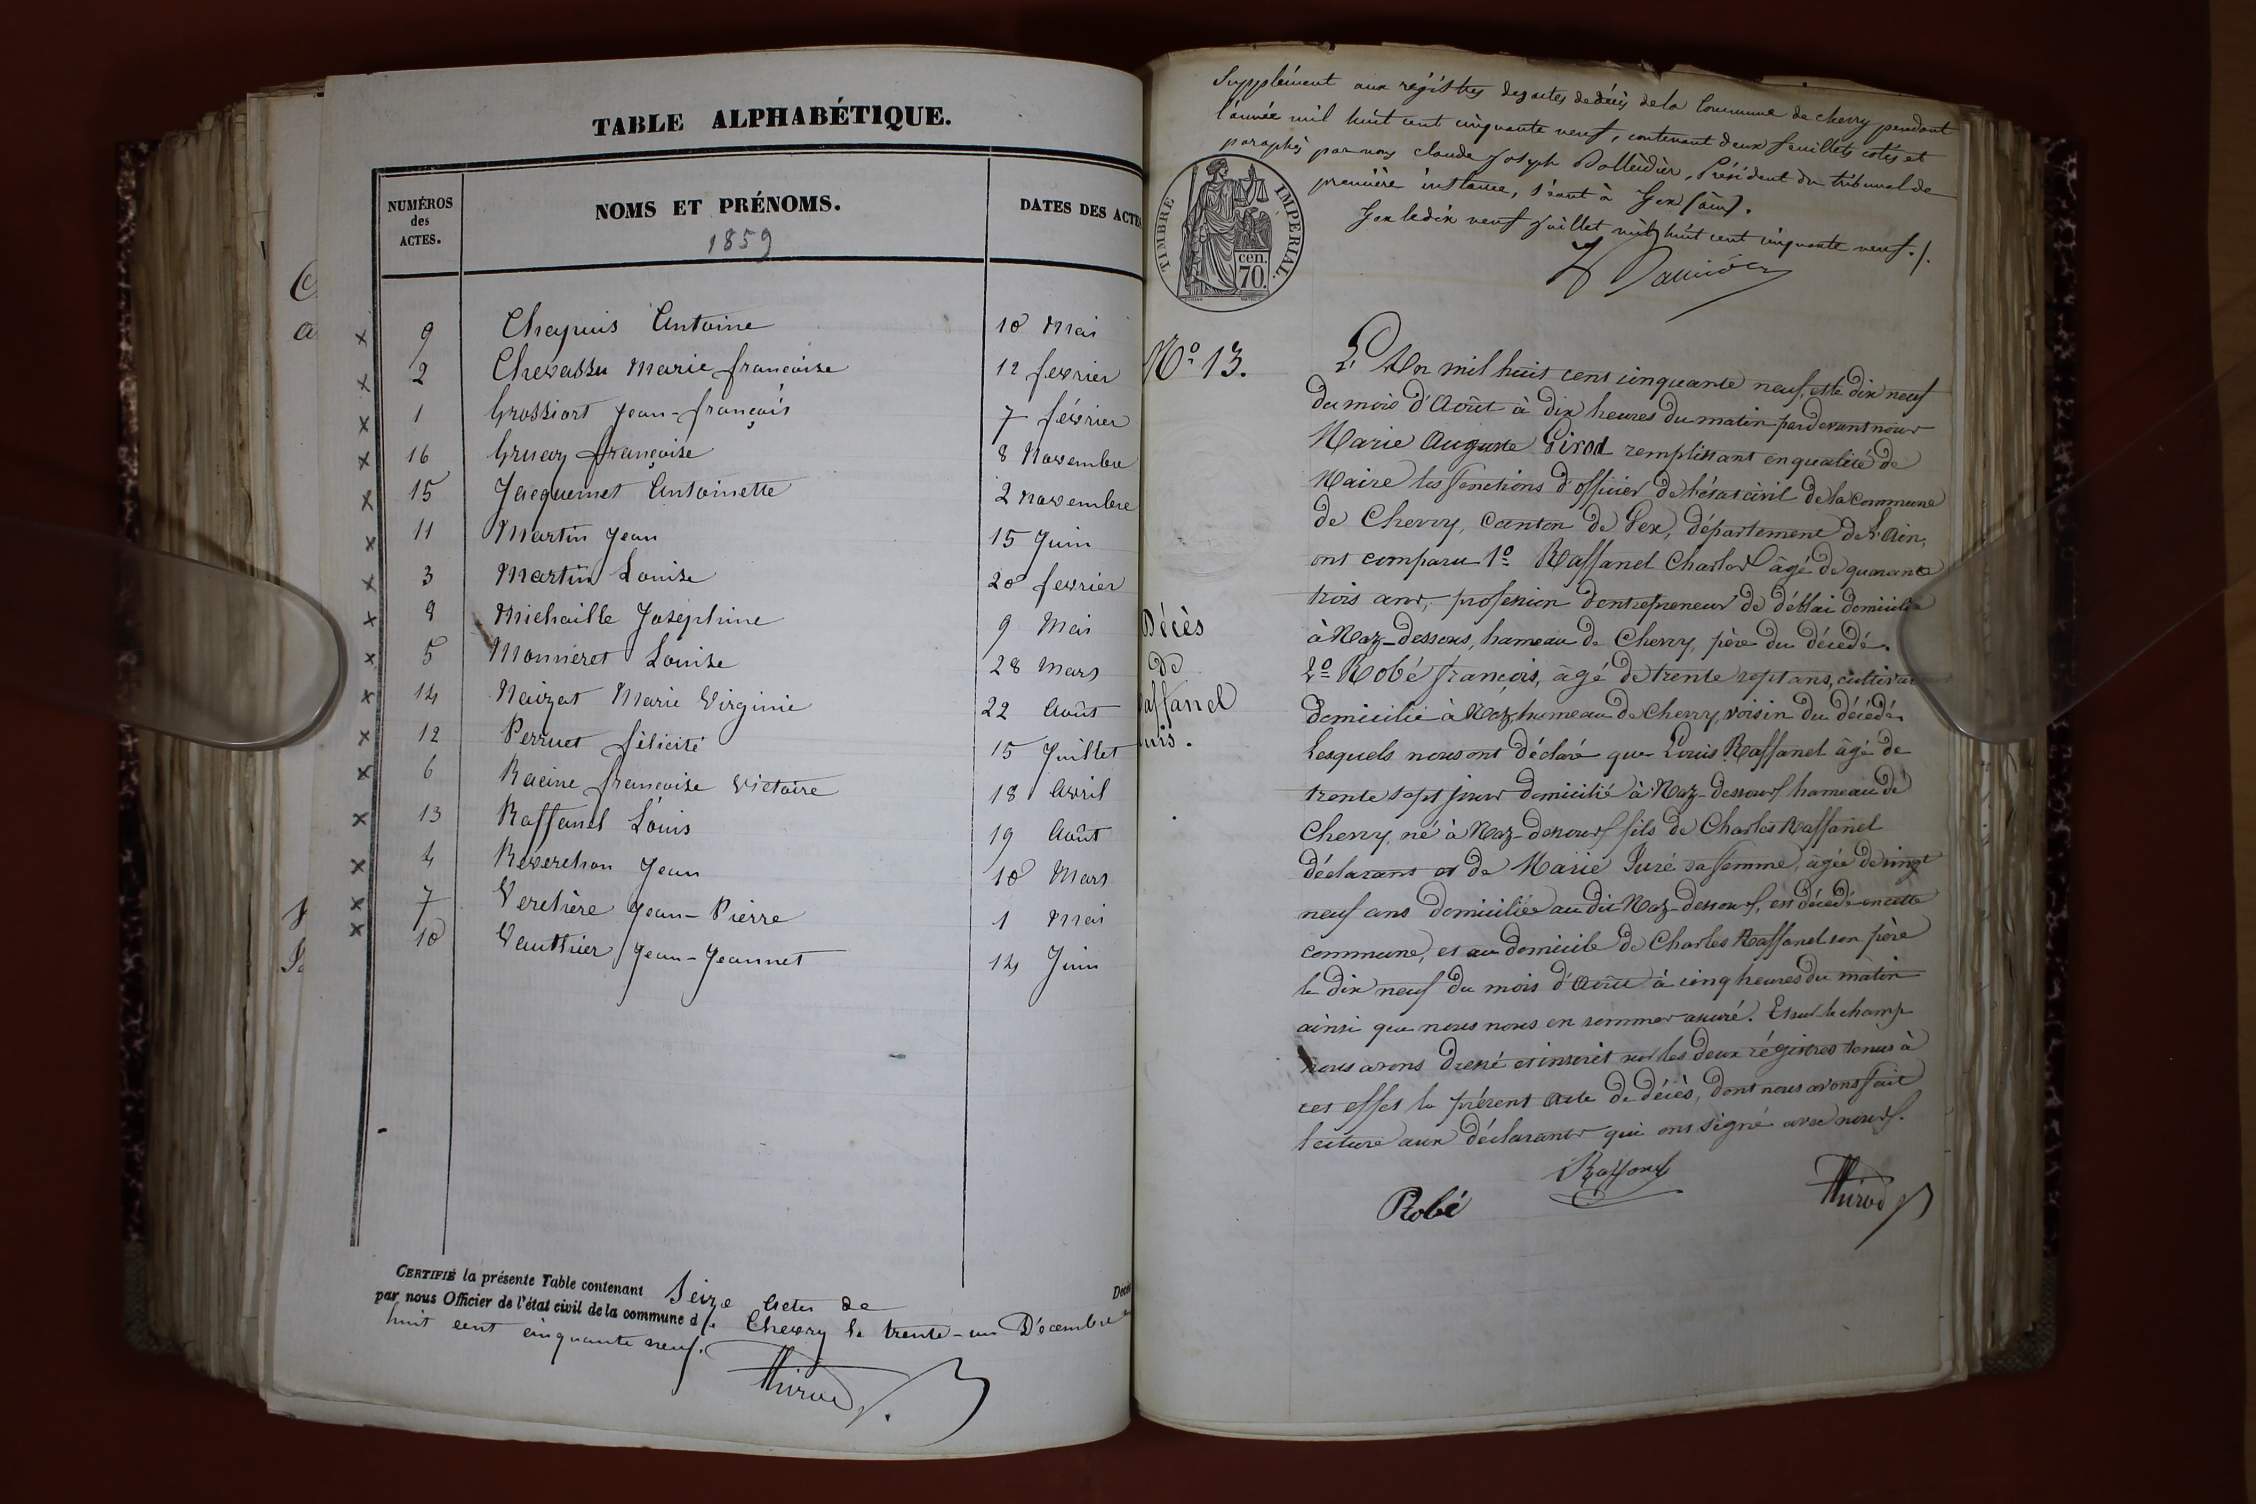 TABLE ALPHABÉTIQUE.
NUMÉROS des ACTES. NOMS ET PRÉNOMS. DATES DES ACTES
1859
9 Chapuis Antoine 10 Mai
2 Chevassu Marie françoise 12 fevrier
1 Grossiort Jean-françois 7 février
16 Gruaz françoise 8 Novembre
15 Jacquemet Antoinette 2 novembre
11 Martin Jean 15 Juin
3 Martin Louise 20 fevrier
8 Michaille Joséphine 9 Mai
5 Monneret Louise 28 Mars
14 Naizat Marie Virginie 22 Août
12 Perruet félicité 15 Juillet
6 Racine françoise Victoire 18 Avril
13 Raffanel Louis 19 Août
4 Reverchon Jean 10 Mars
7 Verchère Jean-Pierre 1 Mai
10 Vauthier Jean-Jeannet 14 Juin
CERTIFIÉ la présente Table contenant Seize actes de Décè
par nous Officier de l'état civil de la commune d e Chevry le trente-un Décembre
huit cent cinquante neuf.
Supplément aux régistres des actes de décès de la Commune de chevry pendant
l'année mil huit cent cinquante neuf, contenant deux feuillets cotés et
paraphés par nous claude Joseph Président du tribunal de
première instance, séant à Gex (ain).
Gex le dix neuf Juillet mil huit cent cinquante neuf ./.
TIMBRE IMPERIAL.
cen.
70.
No 13.
Décès
de
affanel
uis.
L'An mil huit cent cinquante neuf, et le dix neuf
du mois d'Août à dix heures du matin pardevant nous
Marie Auguste Girod remplissant en qualité de
Maire les fonctions d'officier de l'état civil de la commune
de Chevry, canton de Gex, département de l'Ain,
ont comparu 1o Raffanel Charles âgé de quarante
trois ans, profession d'entrepreneur de déblai domicilié
à Naz-dessous, hameau de Chevry, père du décédé.
2o Robé françois, âgé de trente sept ans, cultivat
domicilié à Naz, hameau de Chevry, voisin du décédé.
Lesquels nous ont déclaré que Louis Raffanel âgé de
trente sept jours domicilié à Naz-dessous hameau de
Chevry, né à Naz-dessous fils de Charles Raffanel
déclarant et de Marie Juré sa femme, âgée de vingt
neuf ans domiciliée au dit Naz-dessous, est décédé en cette
commune, et au domicile de Charles Raffanel son père
le dix neuf du mois d'Août à cinq heures du matin
ainsi que nous nous en sommes assuré. Et sur le champ
nous avons dressé et inscrit sur les deux régistres tenus à
cet effet le présent acte de décès, dont nous avons fait
lecture aux déclarants qui ont signé avec nous.
Raffanel
Robé